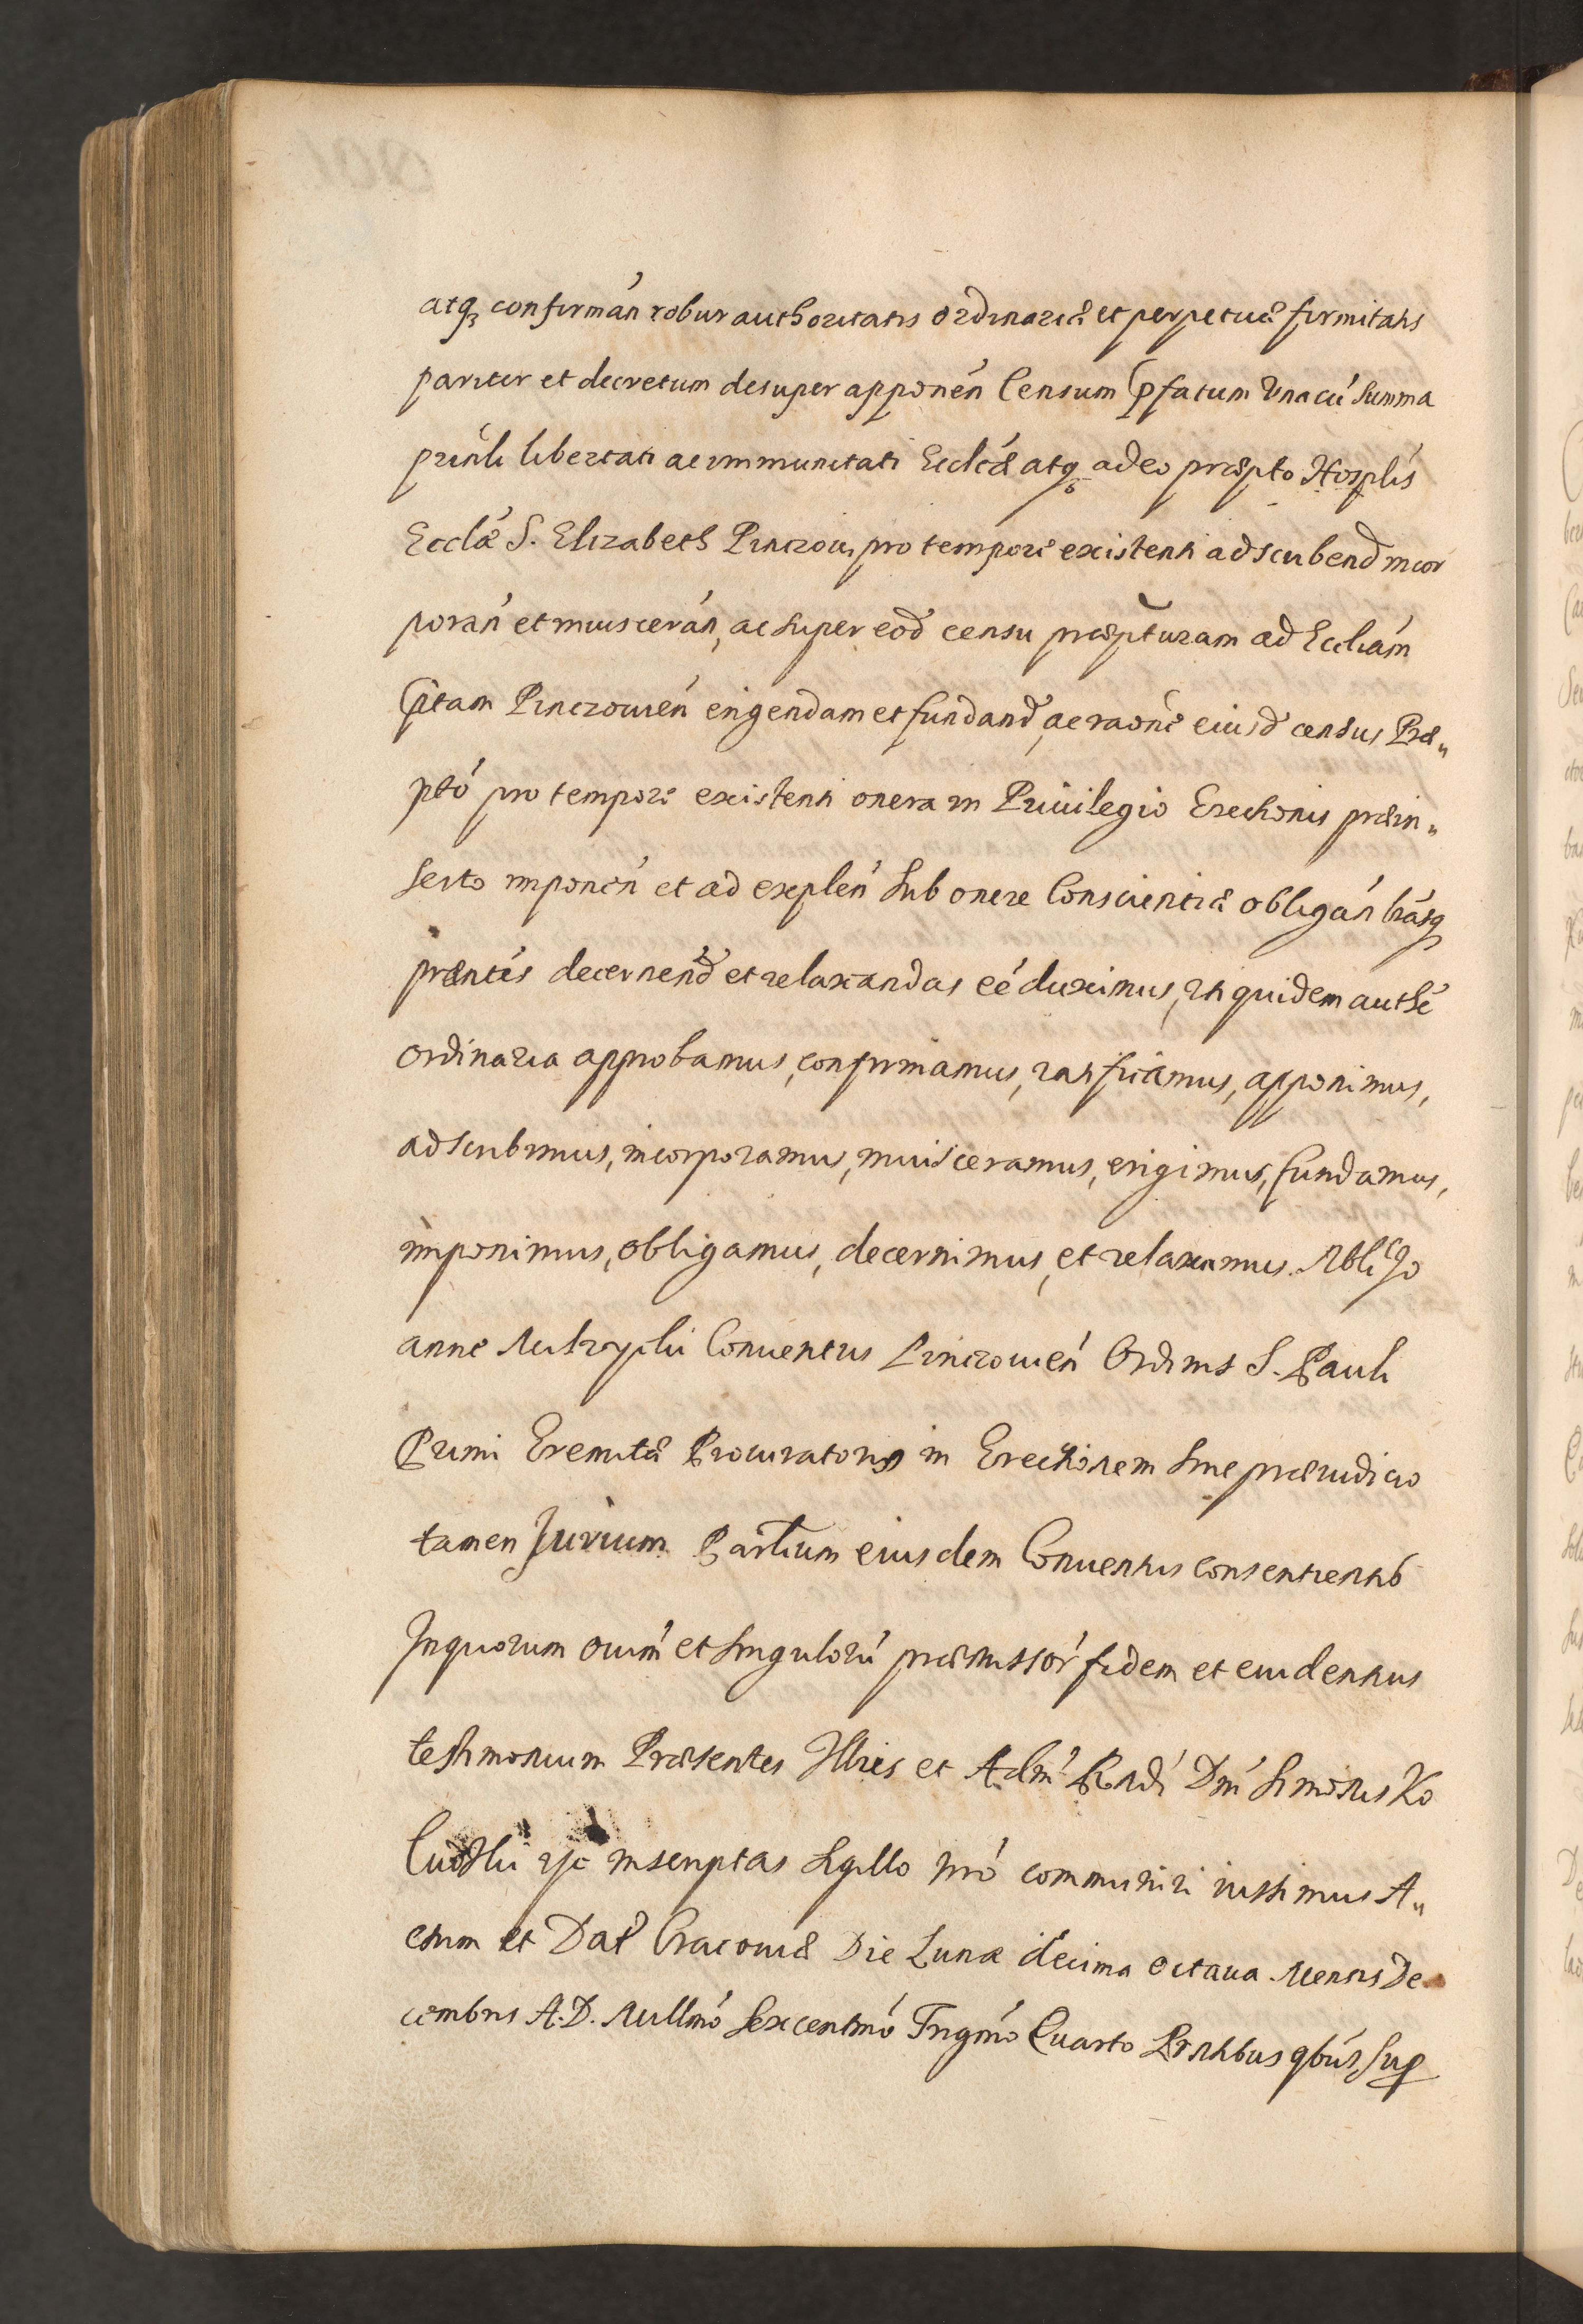 atq₃ confirmán robur authoritatis ordinariæ et perpetuæ firmitatis
pariter et decretum desuper apponén Censum pfatum Vna cú summa
prinli libertati ac immunitati Ecclićæ atq₃ adeo præpto Hosplís
Ecclæ S. Elizabeth Pinczou, pro tempore existenti adscribend incor
porán et inuiscerán, ac super eod censu præpturam ad Eccliám
pítam Pinczouién erigendam et fundand, ac raóne eiusd census Præ„
ptó pro tempore existenti onera in Priuilegio Erectionis præin„
serto imponén et ad explén sub onere Conscientiæ obligán lrásq
præntés decernend et relaxandas eé duximus, uti quidem authé
ordinaria approbamus, confirmamus, ratificamus, apponimus,
adscribimus, incorporamus, inuisceramus, erigimus, fundamus,
imponimus, obligamus, decernimus, et relaxamus. Nbli Jo
anne Conuentus Pinczouién Ordinis S. Pauli
Primi Eremitæ Procuratoris in Erectionem sine præiudicio
tamen Jurium Partium eiusdem Conuentus consentientib
Inquorum oium et singulorú præmissór fidem et euidentius
testimonium Præsentes Illris et Adm Rndi Dni Simonis Ko
inscriptas sigillo nró communiri iussimus A„
ctum et Dat Cracouiæ Die Lunæ decima octaua Mensis De
cembris A. D. Millmó Sexcentmó Trigmó Quarto Prntibus qbús sup